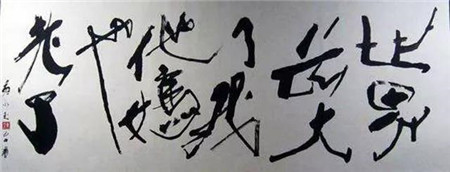 世界
大
了我
他媽
也
老了